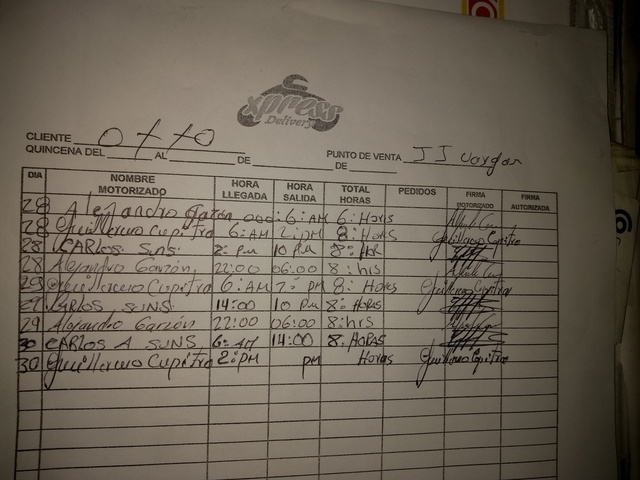 xpress
Delivery
CLIENTE Otto
QUINCENA DEL AL DE DE PUNTO DE VENTA JJ Vargas
DIA NOMBRE MOTORIZADO HORA LLEGADA HORA SALIDA TOTAL HORAS PEDIDOS FIRMA MOTORIZADO FIRMA AUTORIZADA
28 Alejandro Garzón 000: 6:AM 6: Horas
28 Guillermo Cupitra 6:AM 2:PM 8: Horas Guillermo Cupitra
28 CARLOS. SUNS. 2:PM 10 PM 8: HOR
28 Alejandro Garzón, 22:00 06:00 8:hrs
29 Guillermo Cupitra 6:AM 2:PM 8: Horas Guillermo Cupitra
29. CARLOS SUNS. 14:00 10 PM 8: HORAS
29 Alejandro Garzón 22:00 06:00 8:hrs
30 CARLOS A SUNS. 6:AM 14:00 8: HORAS
30 Guillermo Cupitra 2:PM PM Horas Guillermo Cupitra